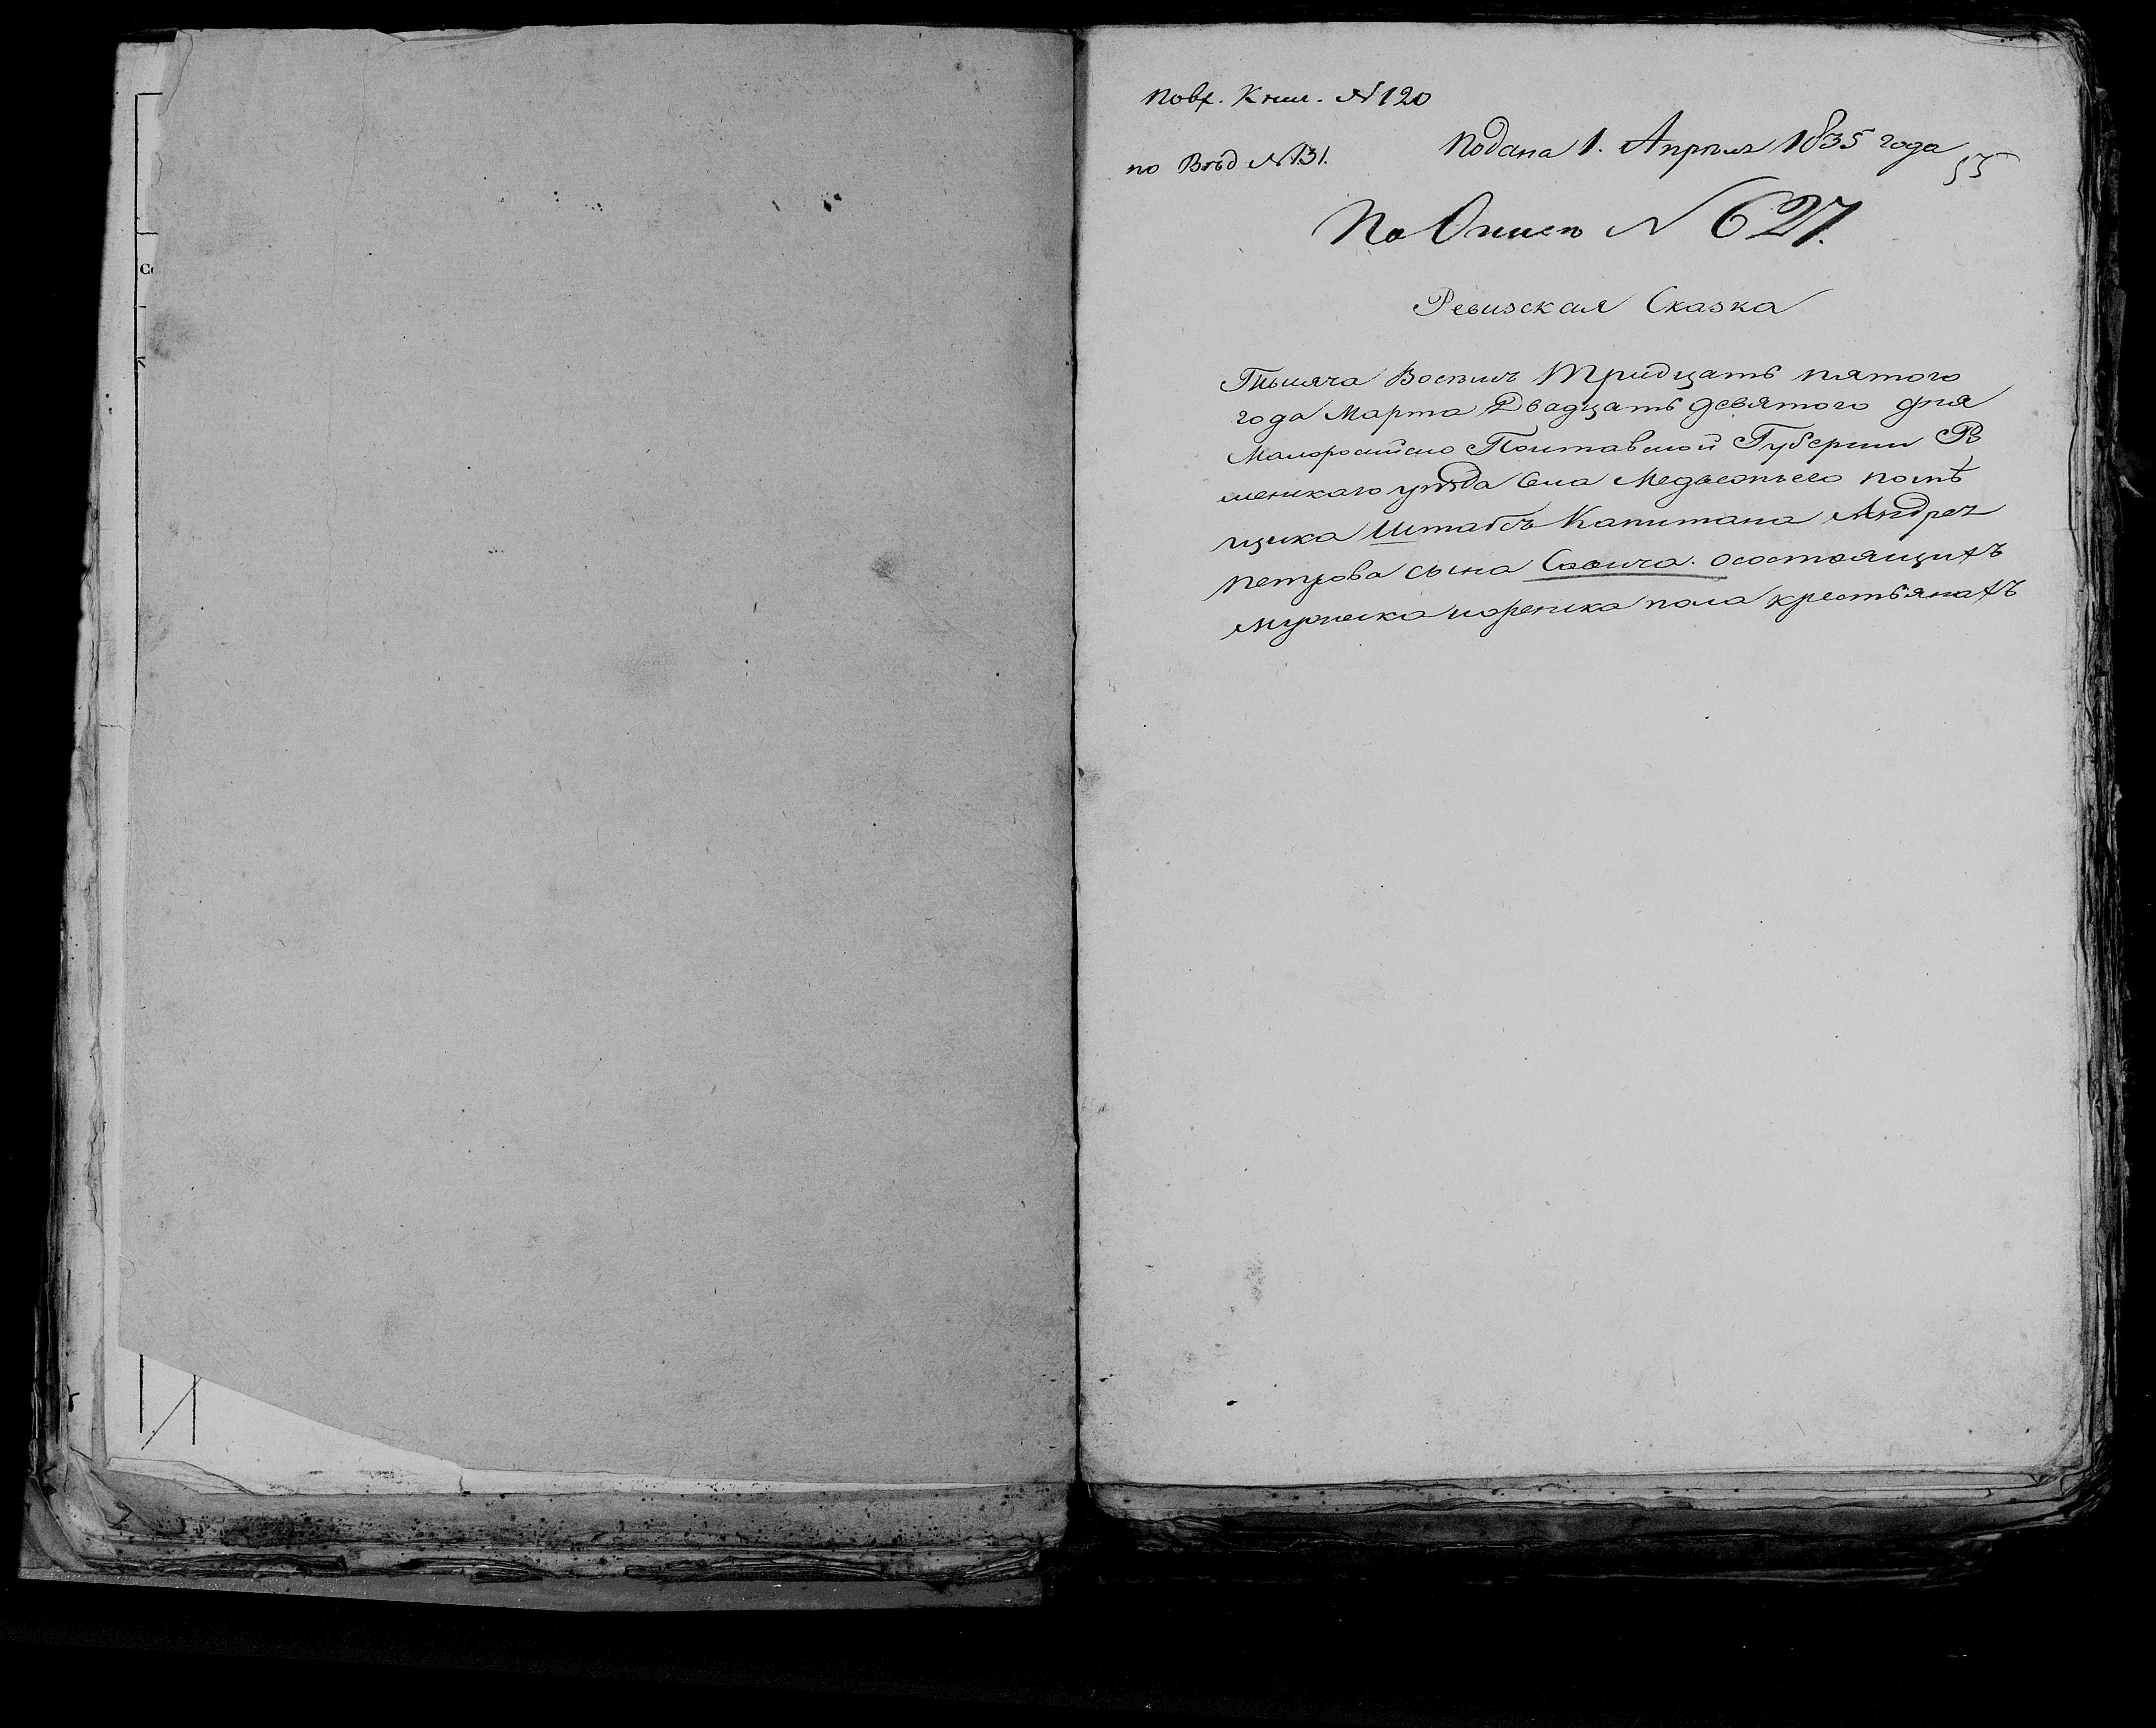 По вх. Книг. № 120
Подана 1. Апрѣля 1835 года
по Вѣд. № 131.
55
По Описѣ № 627.
Ревизская Сказка
Тысяча Восемъ Тридцать пятого
года Марта Двадцать девятого дня
Малоросийско Полтавской Губернии Р
менскаго уѣзда Села Медвежьего помѣ
щика Штабсъ Капитана Андрея
петрова сына Савича. осостоящихъ
мужеска иженска пола крестьянахъ